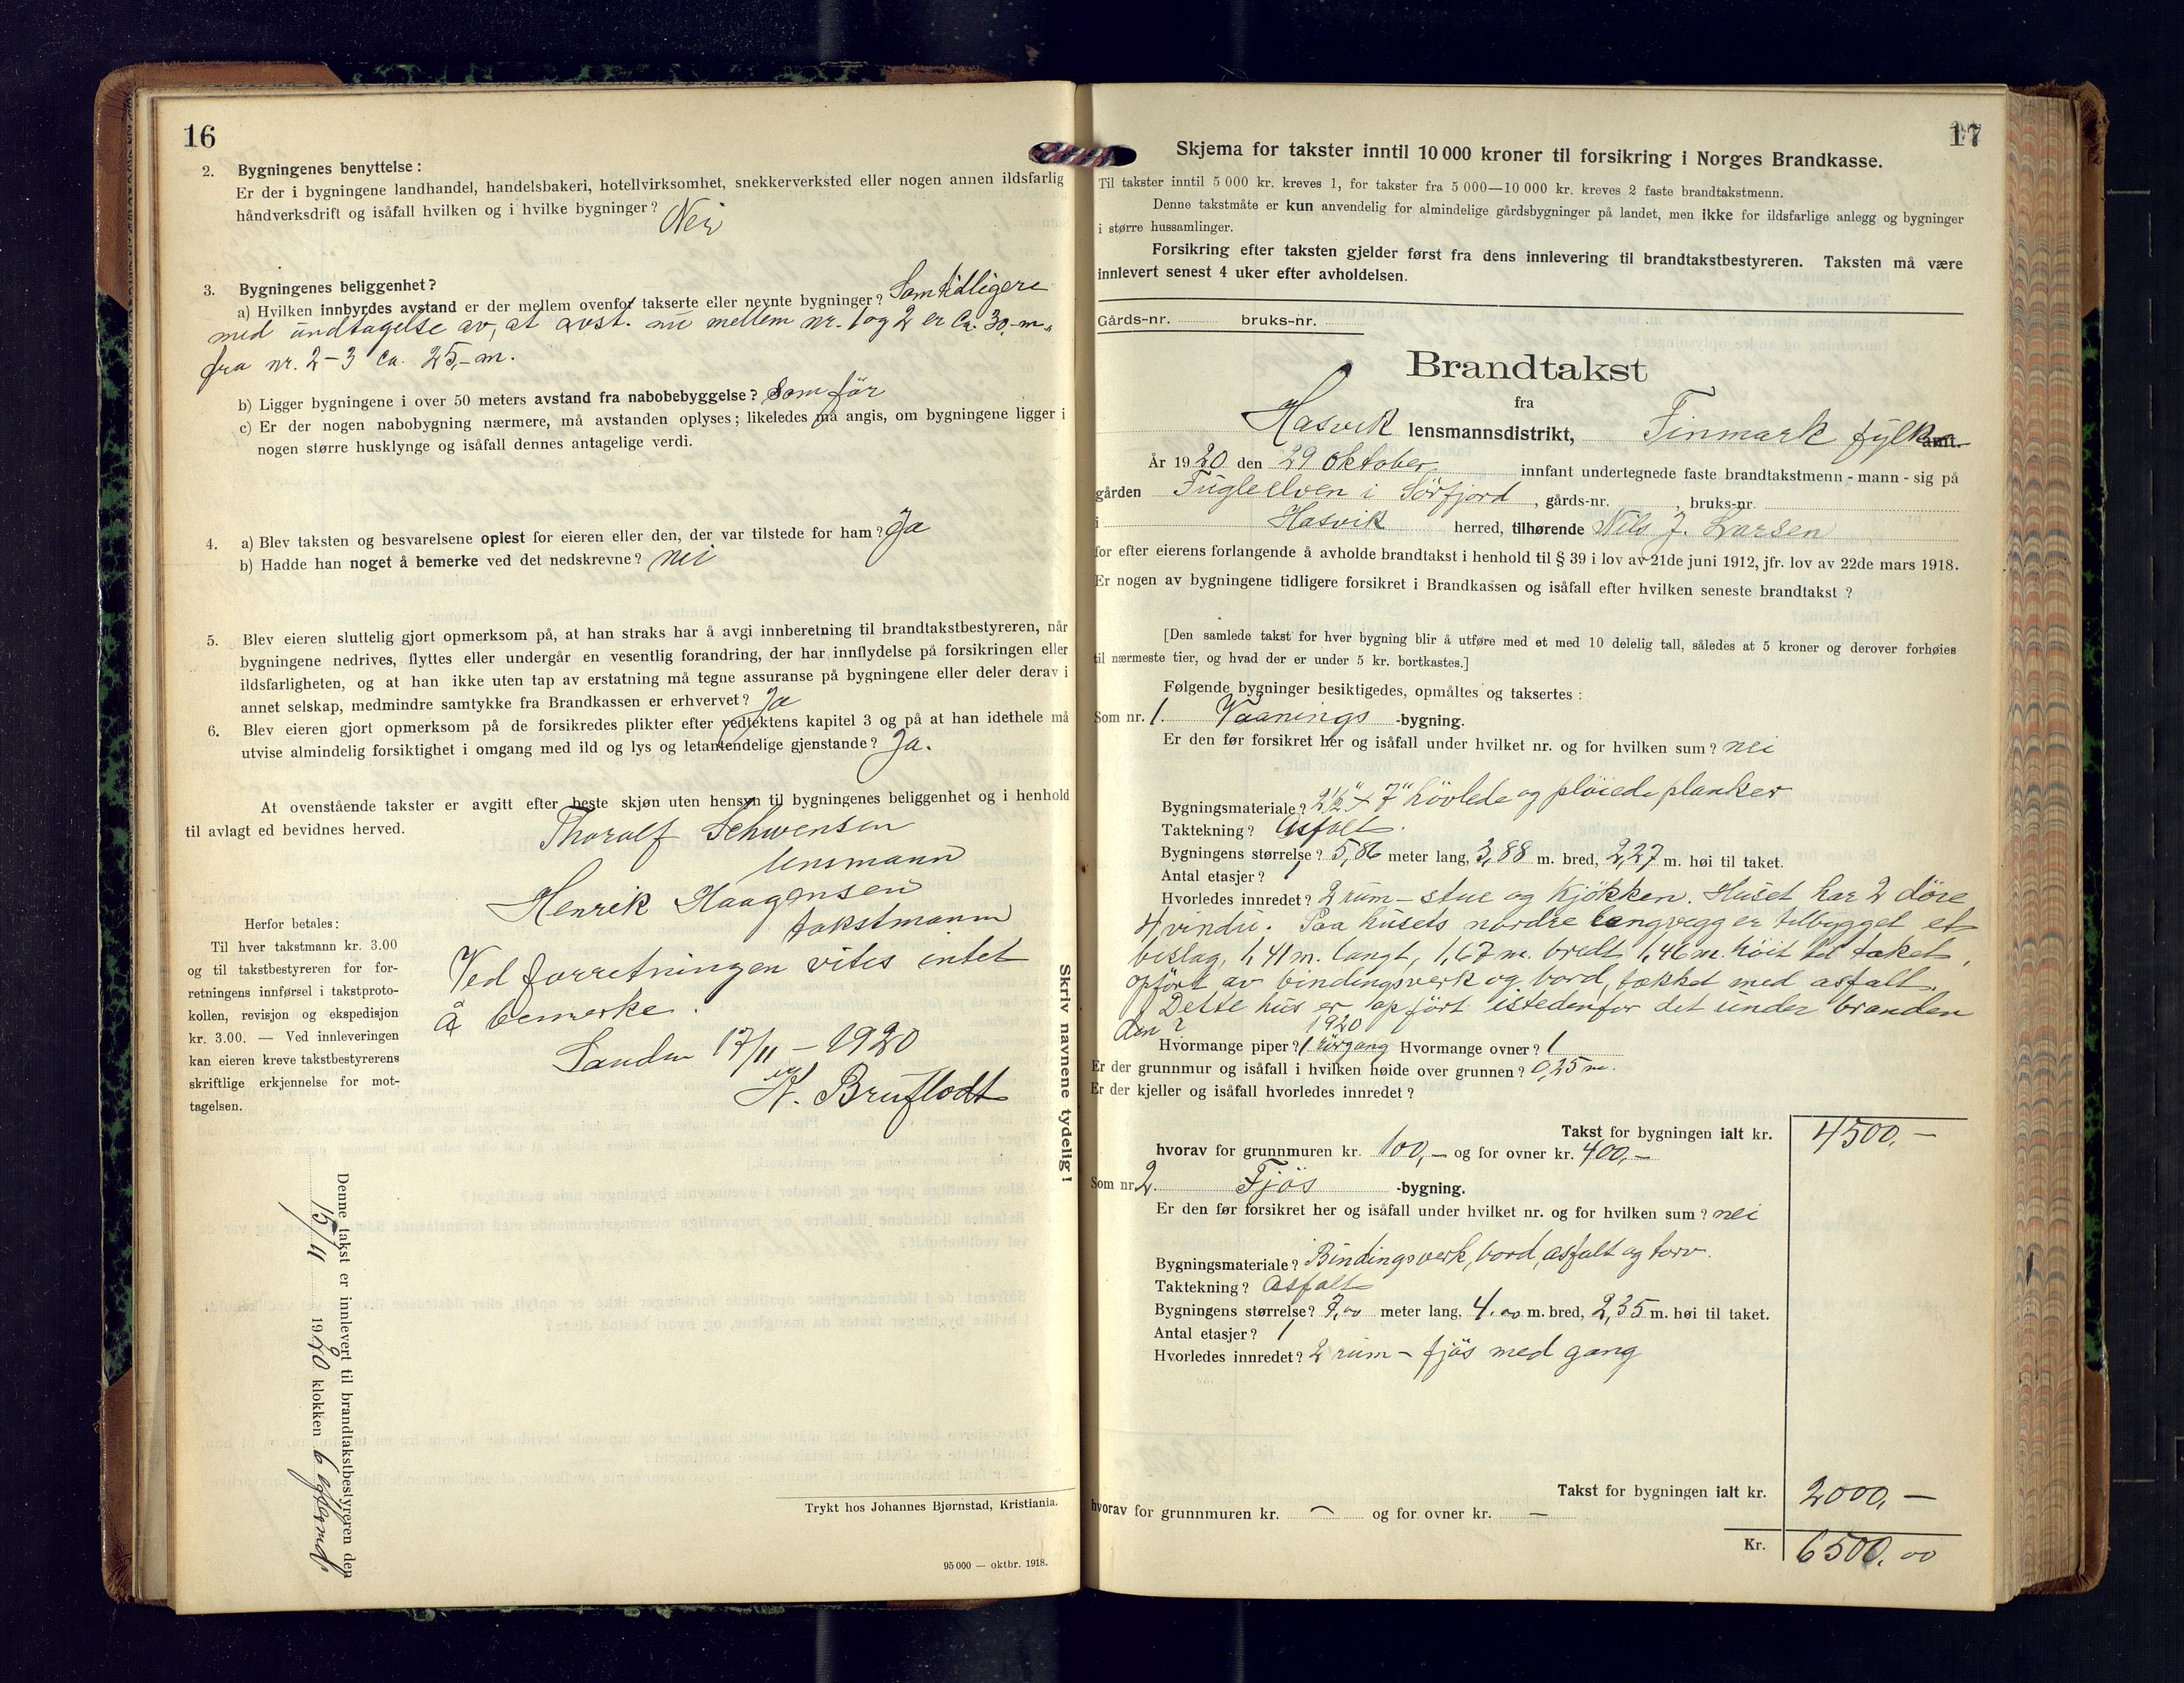 16
2. Bygningenes benyttelse:
Er der i bygningene landhandel, handelsbakeri, hotellvirksomhet, snekkerverksted eller nogen annen ildsfarlig
håndverksdrift og isåfall hvilken og i hvilke bygninger? Nei
3. Bygningenes beliggenhet?
a) Hvilken innbyrdes avstand er der mellem ovenfor takserte eller nevnte bygninger? Som tidligere
med undtagelse av, at avst. nu mellem nr. 1 og 2 er ca. 30,-m.,
fra nr. 2-3 ca. 25,-m.
b) Ligger bygningene i over 50 meters avstand fra nabobebyggelse? Som før
c) Er der nogen nabobygning nærmere, må avstanden oplyses; likeledes må angis, om bygningene ligger i
nogen større husklynge og isåfall dennes antagelige verdi.
4. a) Blev taksten og besvarelsene oplest for eieren eller den, der var tilstede for ham? Ja
b) Hadde han noget å bemerke ved det nedskrevne? nei
5. Blev eieren sluttelig gjort opmerksom på, at han straks har å avgi innberetning til brandtakstbestyreren, når
bygningene nedrives, flyttes eller undergår en vesentlig forandring, der har innflydelse på forsikringen eller
ildsfarligheten, og at han ikke uten tap av erstatning må tegne assuranse på bygningene eller deler derav i
annet selskap, medmindre samtykke fra Brandkassen er erhvervet? Ja
6. Blev eieren gjort opmerksom på de forsikredes plikter efter vedtektens kapitel 3 og på at han idethele må
utvise almindelig forsiktighet i omgang med ild og lys og letantendelige gjenstande? Ja.
At ovenstående takster er avgitt efter beste skjøn uten hensyn til bygningenes beliggenhet og i henhold
til avlagt ed bevidnes herved.
Thoralf Schwensen
lensmann
Henrik Haagensen
takstmann
Herfor betales:
Til hver takstmann kr. 3.00
og til takstbestyreren for for-
retningens innførsel i takstproto-
kollen, revisjon og ekspedisjon
kr. 3.00. — Ved innleveringen
kan eieren kreve takstbestyrerens
skriftlige erkjennelse for mot-
tagelsen.
Ved forretningen vites intet
å bemerke.
Sandu 17/11 - 1920
K. Bruflodt
Skriv navnene tydelig!
Denne takst er innlevert til brandtakstbestyreren den
15/11 1920 klokken 6 efterm.
Trykt hos Johannes Bjørnstad, Kristiania.
95 000 — oktbr. 1918.
17
Skjema for takster inntil 10 000 kroner til forsikring i Norges Brandkasse.
Til takster inntil 5 000 kr. kreves 1, for takster fra 5 000—10 000 kr. kreves 2 faste brandtakstmenn.
Denne takstmåte er kun anvendelig for almindelige gårdsbygninger på landet, men ikke for ildsfarlige anlegg og bygninger
i større hussamlinger.
Forsikring efter taksten gjelder først fra dens innlevering til brandtakstbestyreren. Taksten må være
innlevert senest 4 uker efter avholdelsen.
Gårds-nr. bruks-nr.
Brandtakst
fra
Hasvik lensmannsdistrikt, Finmark fylke amt.
År 1920 den 29 oktober innfant undertegnede faste brandtakstmenn - mann - sig på
gården Fugleelven i Sörfjord, gårds-nr. , bruks-nr.
i Hasvik herred, tilhørende Nils J. Larsen
for efter eierens forlangende å avholde brandtakst i henhold til § 39 i lov av 21de juni 1912, jfr. lov av 22de mars 1918.
Er nogen av bygningene tidligere forsikret i Brandkassen og isåfall efter hvilken seneste brandtakst?
[Den samlede takst for hver bygning blir å utføre med et med 10 delelig tall, således at 5 kroner og derover forhøies
til nærmeste tier, og hvad der er under 5 kr. bortkastes.]
Følgende bygninger besiktigedes, opmåltes og taksertes:
Som nr. 1. Vaanings -bygning.
Er den før forsikret her og isåfall under hvilket nr. og for hvilken sum? nei
Bygningsmateriale? 2½" x 7" hövlede og plöiede planker
Taktekning? Asfalt.
Bygningens størrelse? 5,86 meter lang, 3,88 m. bred, 2,27 m. høi til taket.
Antal etasjer? 1
Hvorledes innredet? 2 rum - stue og kjökken. Huset har 2 döre
4 vindu. Paa husets nordre langvegg er tilbygget et
bislag, 1,41 m. langt, 1,67 m. bredt 1,46 m. höit til taket,
opfört av bindingsverk og bord, tækket med asfalt.
Dette hus er opfört istedenfor det under branden
den ? 1920
Hvormange piper? 1 rörgang Hvormange ovner? 1
Er der grunnmur og isåfall i hvilken høide over grunnen? 0,25 m.
Er der kjeller og isåfall hvorledes innredet?
Takst for bygningen ialt kr. 4500,-
hvorav for grunnmuren kr. 100,- og for ovner kr. 400,-
Som nr. 2. Fjös -bygning.
Er den før forsikret her og isåfall under hvilket nr. og for hvilken sum? nei
Bygningsmateriale? Bindingsverk, bord, asfalt og torv.
Taktekning? Asfalt
Bygningens størrelse? 7,00 meter lang, 4.00 m. bred, 2,35 m. høi til taket.
Antal etasjer? 1
Hvorledes innredet? 2 rum - fjös med gang
Takst for bygningen ialt kr. 2000,-
hvorav for grunnmuren kr. — og for ovner kr. —
Kr. 6500.00